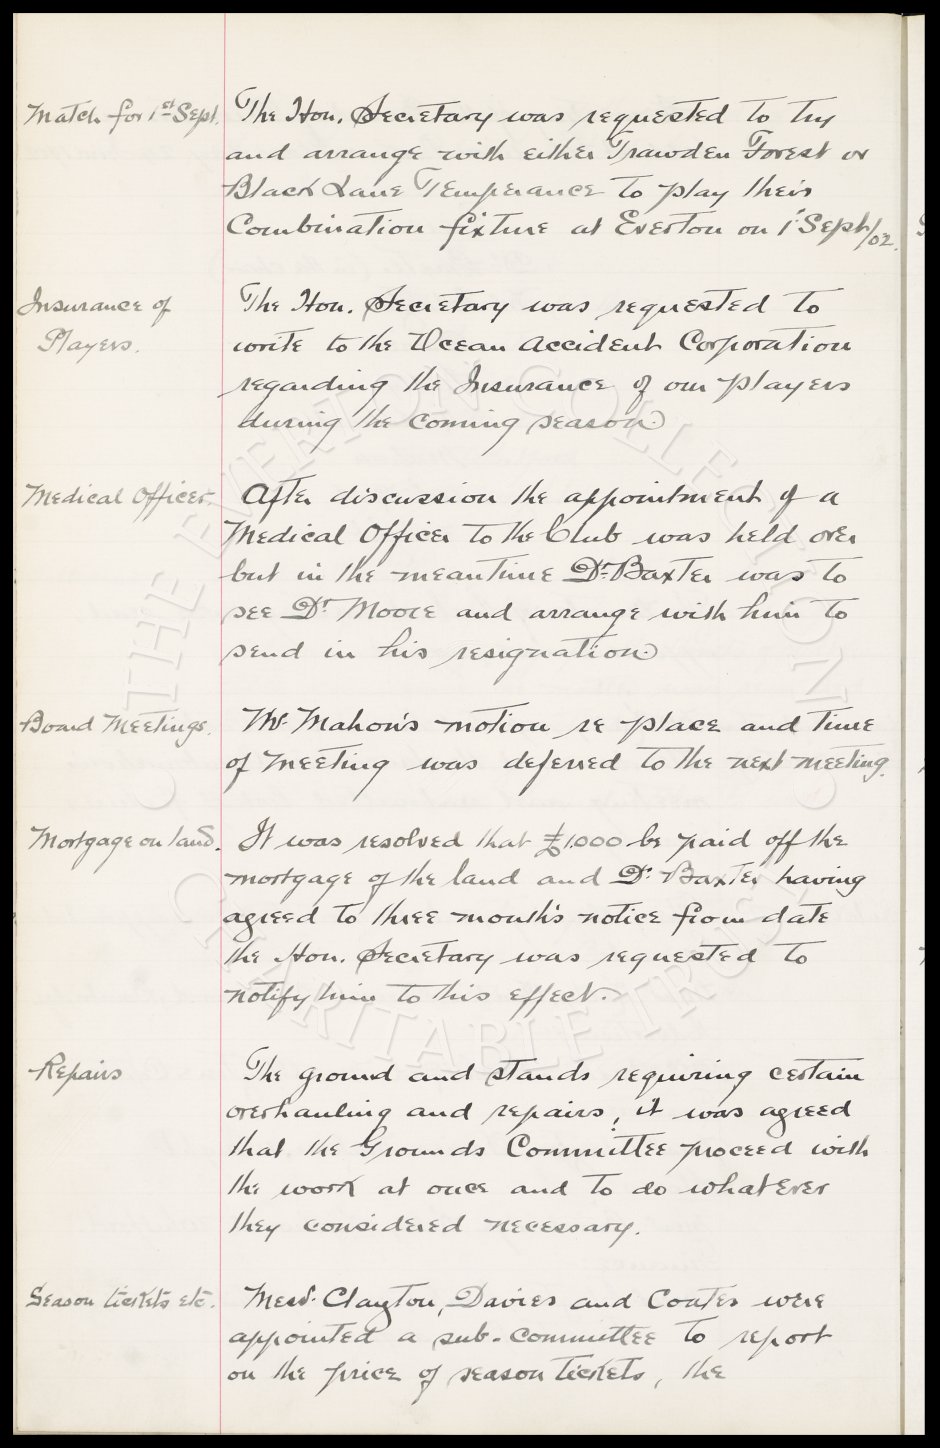 Match for 1st Sept. The Hon. Secretary was requested to try
and arrange with either Trawden Forest or
Black Lane Temperance to play their
Combination fixture at Everton on 1st Sept/02.
Insurance of The Hon. Secretary was requested to
Players. write to the Ocean Accident Corporation
regarding the Insurance of our players
during the coming season.
Medical Officer. After discussion the appointment of a
Medical Officer to the Club was held over
but in the meantime Dr. Baxter was to
see Dr. Moore and arrange with him to
send in his resignation.
Board Meetings. Mr. Mahon's motion re place and time
of meeting was deferred to the next meeting.
Mortgage on land. It was resolved that £1,000 be paid off the
mortgage of the land and Dr. Baxter having
agreed to three month's notice from date
the Hon. Secretary was requested to
notify him to this effect.
Repairs The ground and stands requiring certain
overhauling and repairs, it was agreed
that the Grounds Committee proceed with
the work at once and to do whatever
they considered necessary.
Season tickets etc. Messrs. Clayton, Davies and Coates were
appointed a sub-committee to report
on the price of season tickets, the
THE EVERTON COLLECTION
CHARITABLE TRUST